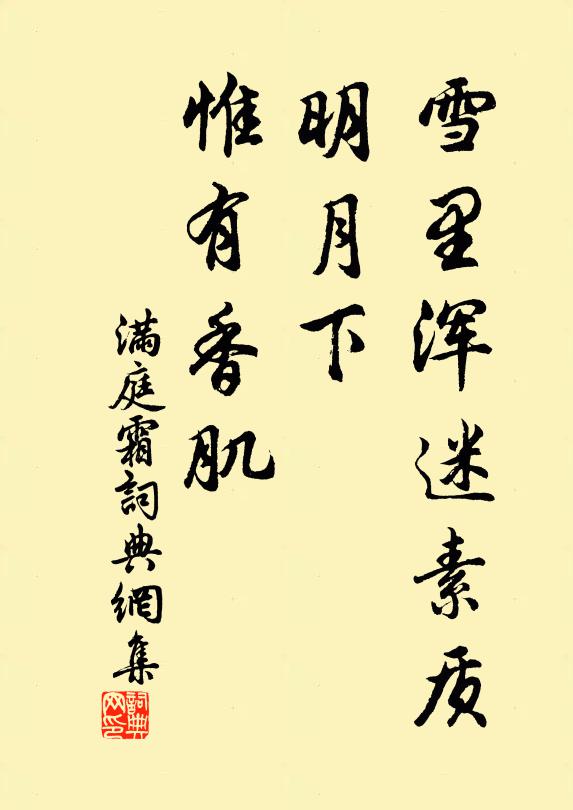 雪里浑迷素质
明月下
惟有香肌
满庭霜詞典網集
詞典
网印